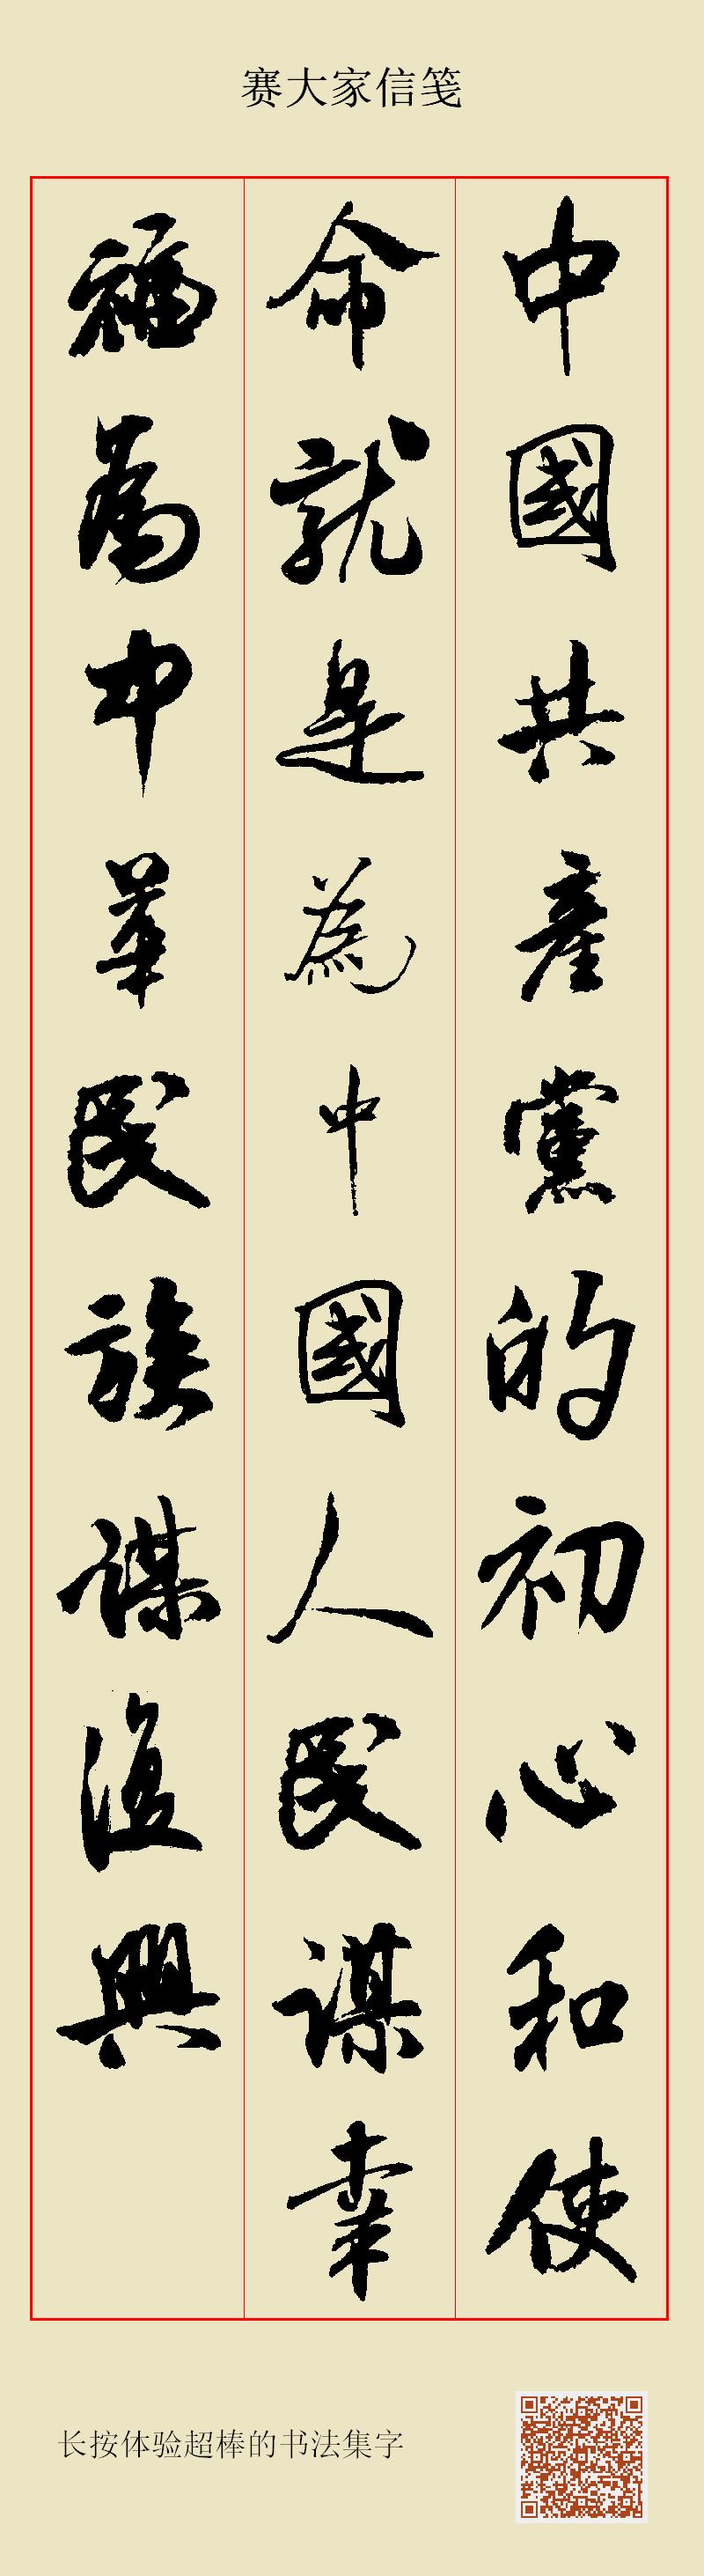 赛大家信笺
中國共產黨的初心和使
命就是為中國人民謀幸
福為中華民族謀復興
长按体验超棒的书法集字